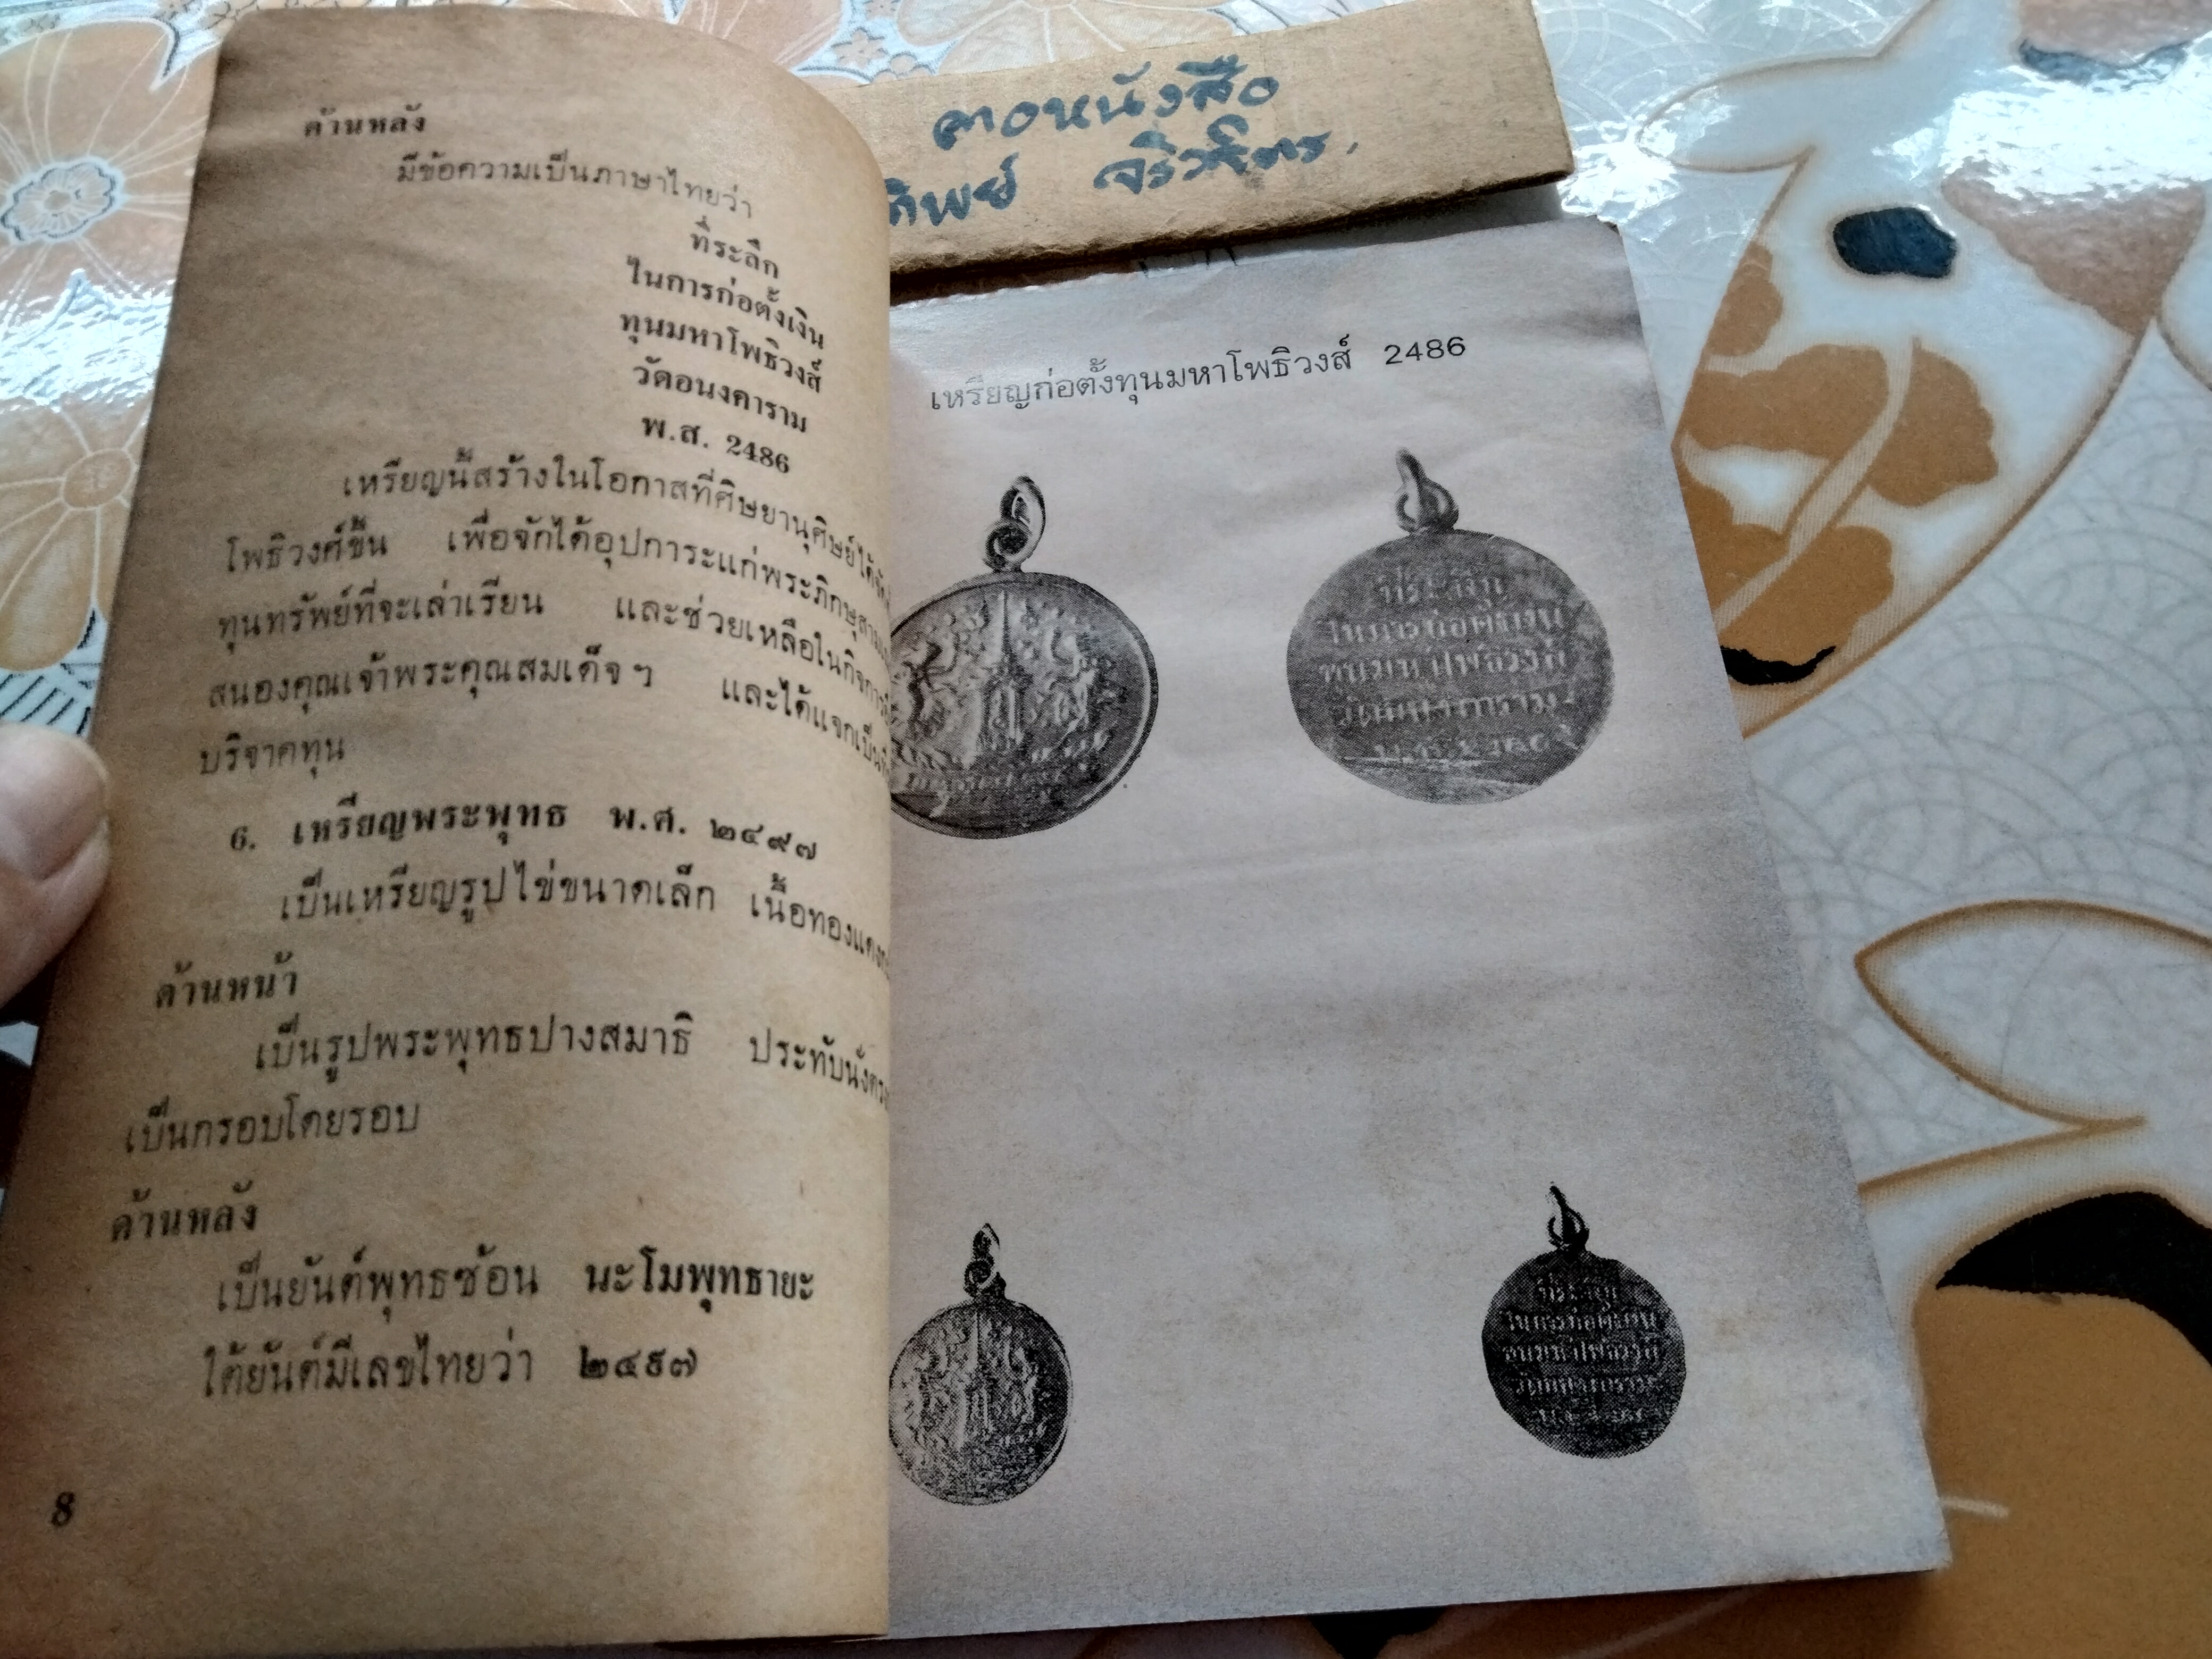 ด้านหลัง
มีข้อความเป็นภาษาไทยว่า
ที่ระลึก
ในการก่อตั้งเงิน
ทุนมหาโพธิวงส์
วัดอนงคาราม
พ.ส. 2486
เหรียญนี้สร้างในโอกาสที่ศิษยานุศิษย์ได้
โพธิวงศ์ขึ้น เพื่อจักได้อุปการะแก่พระภิกษุ
ทุนทรัพย์ที่จะเล่าเรียน และช่วยเหลือในกิจการ
สนองคุณเจ้าพระคุณสมเด็จฯ และได้แจกเป็น
บริจาคทุน
6. เหรียญพระพุทธ พ.ศ. ๒๔๙๗
เป็นเหรียญรูปไข่ขนาดเล็ก เนื้อทองแดง
ด้านหน้า
เป็นรูปพระพุทธปางสมาธิ ประทับนั่ง
เป็นกรอบโดยรอบ
ด้านหลัง
เป็นยันต์พุทธซ้อน นะโมพุทธายะ
ใต้ยันต์มีเลขไทยว่า ๒๔๙๗
8
ตอหนังสือ
ทิพย์
เหรียญก่อตั้งทุนมหาโพธิวงส์ 2486
ที่ระลึก
ในการก่อตั้งเงิน
ทุนมหาโพธิวงส์
วัดอนงคาราม